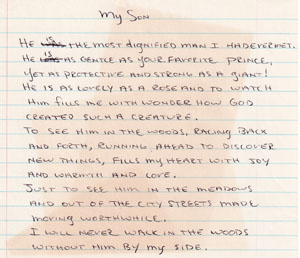 My Son
He is the most dignified man I had ever met.
He is as gentle as your favorite prince,
yet as protective and strong as a giant!
He is as lovely as a rose and to watch
him fills me with wonder how God
created such a creature.
To see him in the woods, racing back
and forth, running ahead to discover
new things, fills my heart with joy
and warmth and love.
Just to see him in the meadows
and out of the city streets made
moving worthwhile.
I will never walk in the woods
without him by my side.